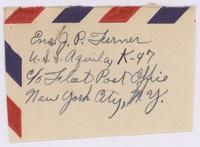 Ens. J. P. Turner
U.S.S. Aquila, K-47
C/o Fleet Post Office
New York City, N.Y.